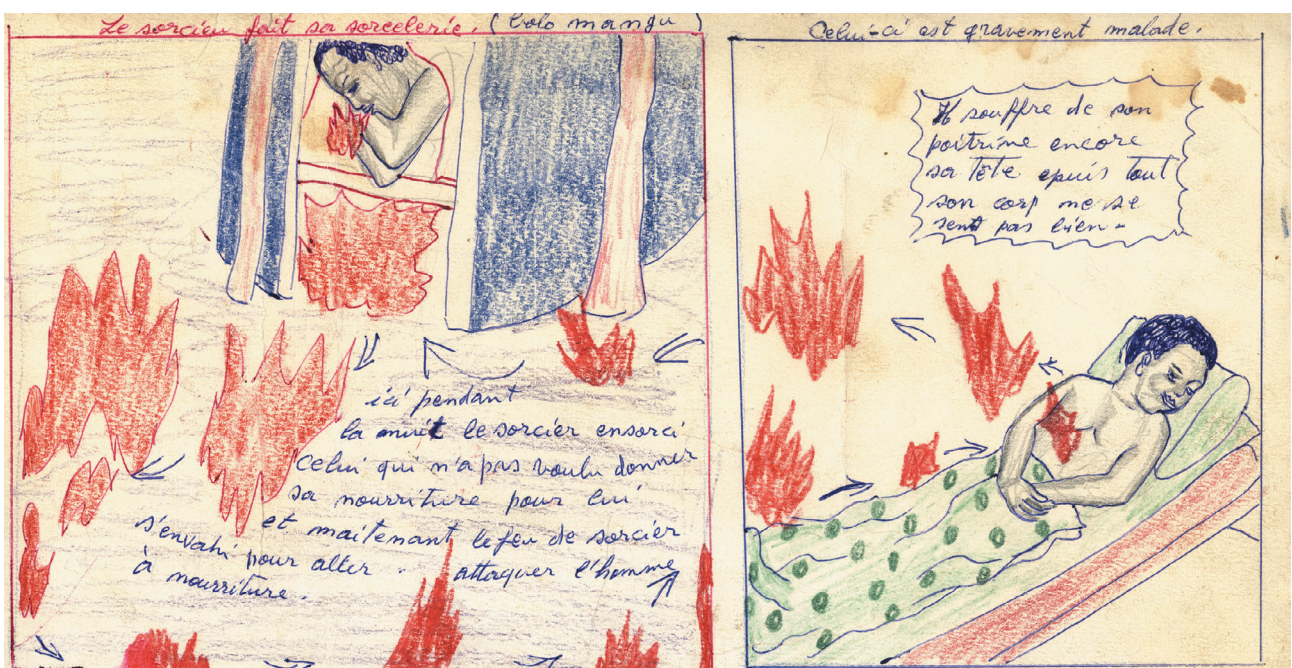 Le sorcieu fait sa sorcelerie. (bolo mangu)
ici pendant
la nuit le sorcier ensorci
celui qui n'a pas voulu donner
sa nourriture pour lui
et maitenant le feu de sorcier
s'envahi pour aller . attaquer l'homme
à nourriture.
Celui-ci est gravement malade.
Il souffre de son
poitrine encore
sa tête epuis tout
son corp ne se
sent pas bien-